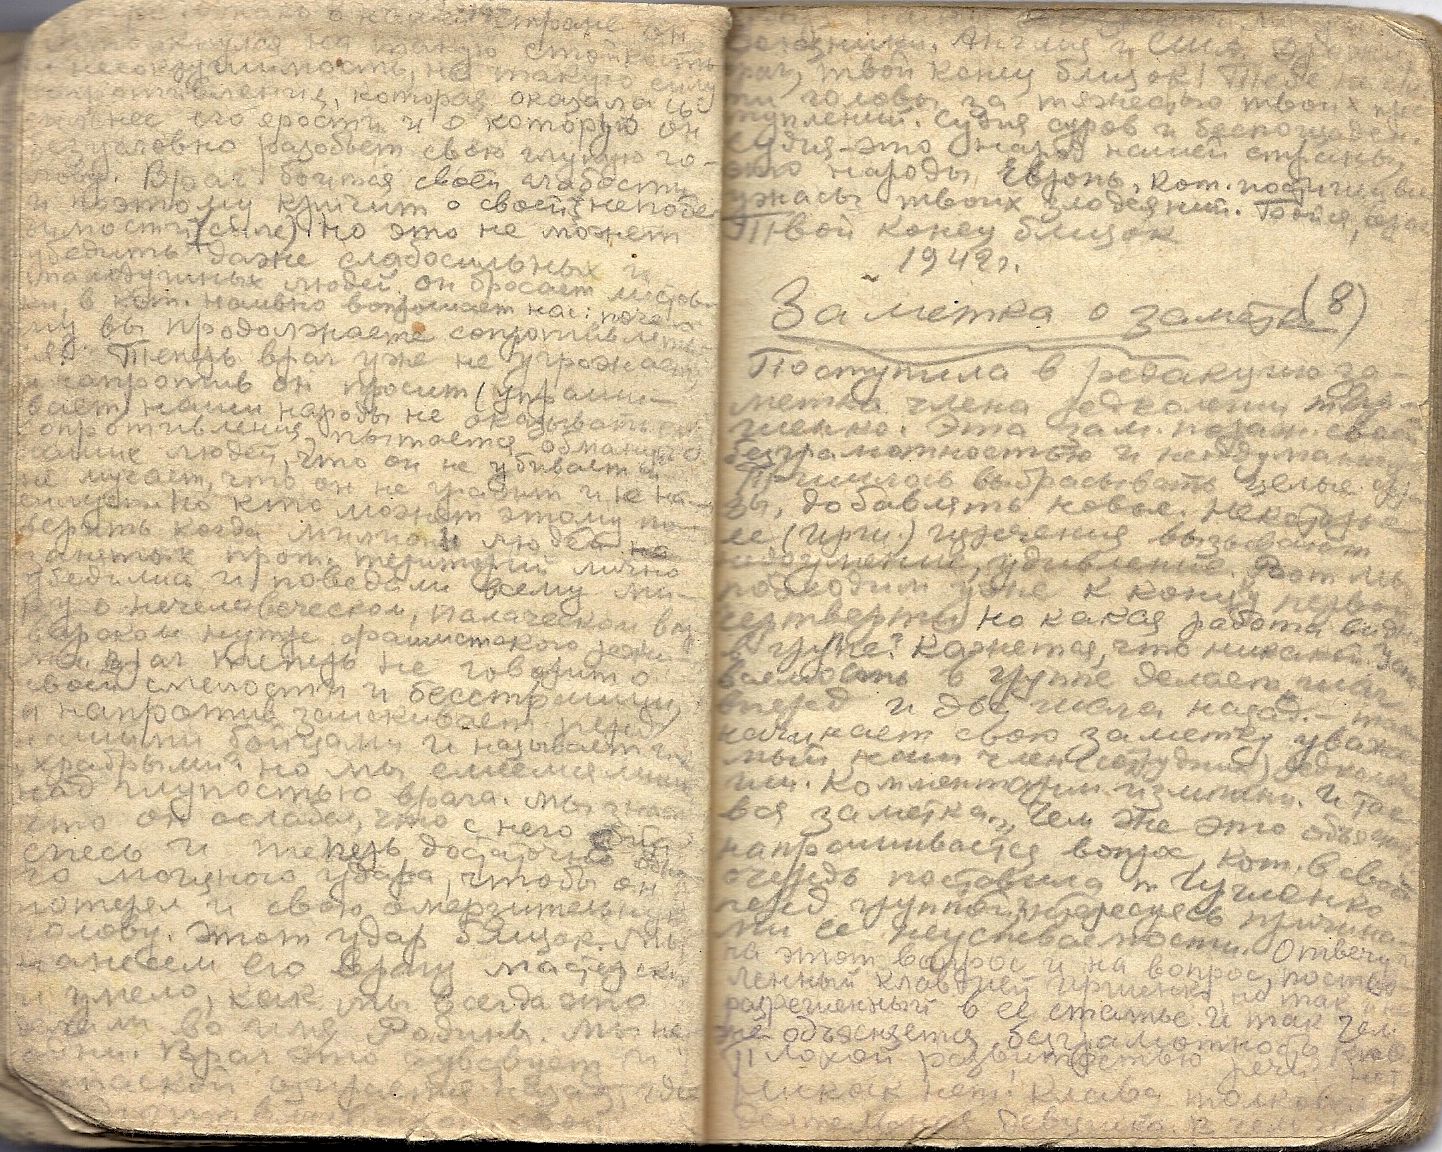 в нашей стране он
на такую стойкость
несокрушимость, на такую силу
сопротивления, которая оказалась
сильнее его ярости и о которую он
безусловно разобьет свою глупую го-
лову. Враг боится своей слабости
и поэтому кричит о своей непобе-
димости (силе). Но это не может
убедить даже слабосильных и
малодушных людей. он бросает листов-
ки, в кот. наивно вопрошает нас: поче-
му вы продолжаете сопротивлять-
ся? Теперь враг уже не угрожает
а напротив он просит (упраши-
вает) наши народы не оказывать
сопротивления, пытается обмануть
наших людей, что он не убивает
не мучает, что он не грабит и не на-
силует. Но кто может этому по-
верить когда милионы людей не
занятых прот. територий лично
убедились и поведали всему ми-
ру о нечеловеческом, палаческом
варском нутре фашистского режи-
ма. Враг теперь не говорит о
своей смелости и бесстрашии,
а напротив заискивает перед
нашими бойцами и называет их
храбрыми. но мы смеемся
над глупостью врага. мы знаем
что он ослабел, что с него сбита
спесь и теперь достаточно одно-
го мощного удара, чтобы он
потерял и свою омерзительную
голову. Этот удар близок. Мы
нанесем его врагу мастерски
и умело, как мы всегда это
делали во имя Родины. Мы
Враг это чувствует и
с опаской озирается назад, где
Союзники. Англия и США.
враг, твой конец близок! Тебе не
ти головы за тяжестью твоих прес-
туплений. Судия суров и беспощаден.
Судия-это народ нашей страны,
это народы Европы, кот. постигли все
ужасы твоих злодеяний. Бойся, враг
Твой конец близок
1942г.
Заметка о заметке (8)
Поступила в редакцию за-
метка члена редколегии
щенко. Эта зам. пораж. своей
безграмотностью и необдуманностью
Пришлось выбрасывать целые фра-
зы, добавлять новые. Некоторые
ее (Ирги.) изречения вызывают
недоумение, удивление. "Вот мы
подходим уже к концу первой
четверти, но какая работа видна
в группе? Кажется, что никакой. Успе-
ваемость в группе делает шаг
вперед и два шага назад. - так
начинает свою заметку уважае-
мый наш член (сотрудник) редколе-
гии. Комментарии излишни. И так
вся заметка. "Чем же это объяснить
напрашивается вопрос, кот. в свою
очередь поставила т. Гущенко
перед группой, интересуясь причина-
ми ее неуспеваемости. Отвечу
на этот вопрос и на вопрос, постав-
ленный Клавдией, но так и не
разрешенный в ее статье. И так чем
же объясняется безграмотность Клав
Плохой развитостью речи? Нет
Никак нет! Клава толковая
девушка. В чем